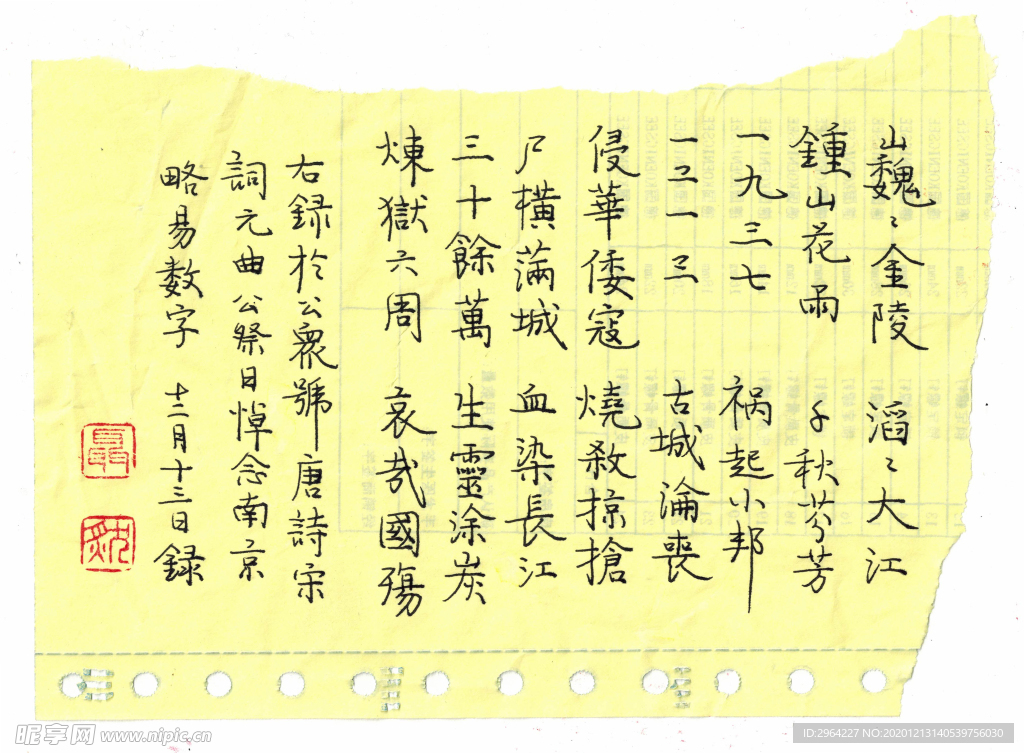 巍〻金陵 滔〻大江
鍾山花雨 千秋芬芳
一九三七 祸起小邦
一二一三 古城淪喪
侵華倭寇 燒殺掠搶
尸橫滿城 血染長江
三十餘萬 生靈涂炭
煉獄六周 哀哉國殤
右録於公衆號唐詩宋
詞元曲公祭日悼念南京
略易数字 十二月十三日録
昵享网 www.nipic.cn
ID:2964227 NO:20201213140539756030